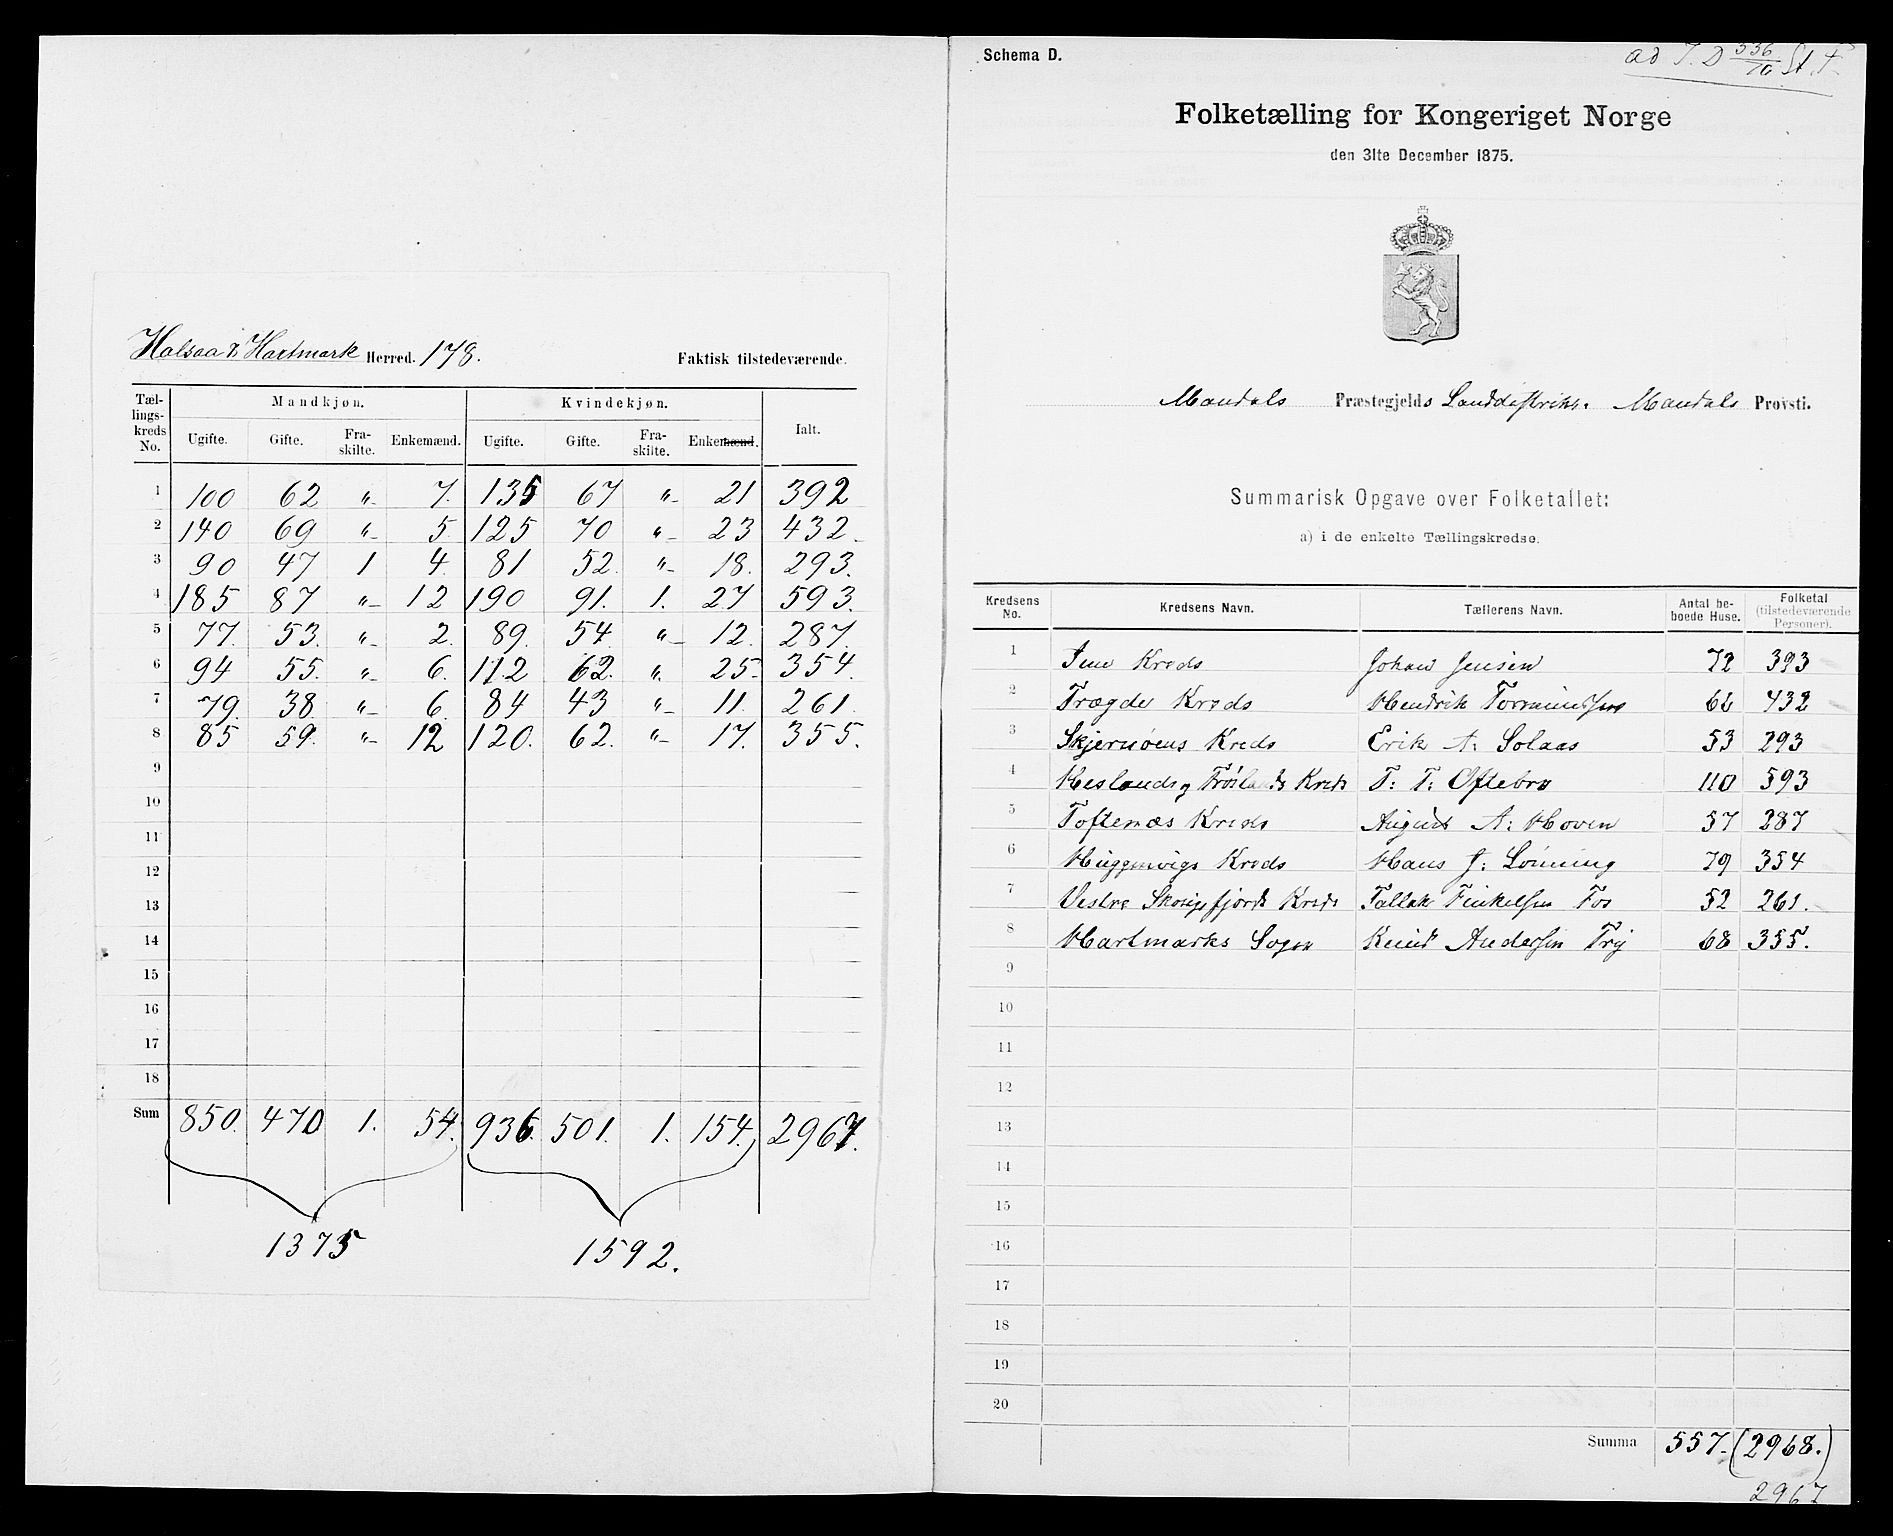 Halsaa & Hartmark Herred. 178. Faktisk tilstedeværende.
Tællingskreds No. Mandkjøn. Kvindekjøn. Ialt.
Ugifte. Gifte. Fraskilte. Enkemænd. Ugifte. Gifte. Fraskilte. Enkemænd.
1 100 62 "- 7. 135 67 "- 21 392
2 140 69 "- 5 125 70 "- 23 432.
3 90 47 1 4 81 52. "- 18. 293.
4 185 87 "- 12 190 91. 1. 27 593.
5 77. 53. "- 2. 89. 54 "- 12. 287.
6 94 55. "- 6. 112 62. ". 25. 354.
7 79. 38 "- 6 84 43 "- 11. 261.
8 85 59. "- 12 120. 62. "- 17. 355.
9
10
11
12
13
14
15
16
17
18
Sum 850. 470 1. 54. 936. 501. 1. 154. 2967.
1375 1592.
Schema D.
ad J. D 336/76 St. F.
Folketælling for Kongeriget Norge
den 31te December 1875.
Mandals Præstegjelds Landdistrikt. Mandals Provsti.
Summarisk Opgave over Folketallet:
a) i de enkelte Tællingskredse.
Kredsens No. Kredsens Navn. Tællerens Navn. Antal beboede Huse. Folketal (tilstedeværende Personer).
1 Ime Kreds Johan Jensen 72 393
2 Trægde Kreds Hendrik Tormundsen 66 432
3 Skjernøens Kreds Erik A: Solaas 53 293
4 Heslands og Frøslands Kreds T: T: Øftebro 110 593
5 Toftenæs Kreds August A: Hoven 57 287
6 Huggenvigs Kreds Hans J: Lönning 79 354
7 Vestre Skougsfjords Kreds Tallak Finkelsen Fos 52 261.
8 Hartmarks Sogn Knud Andersen Try 68 355.
9
10
11
12
13
14
15
16
17
18
19
20
Summa 557. (2968.)
2967